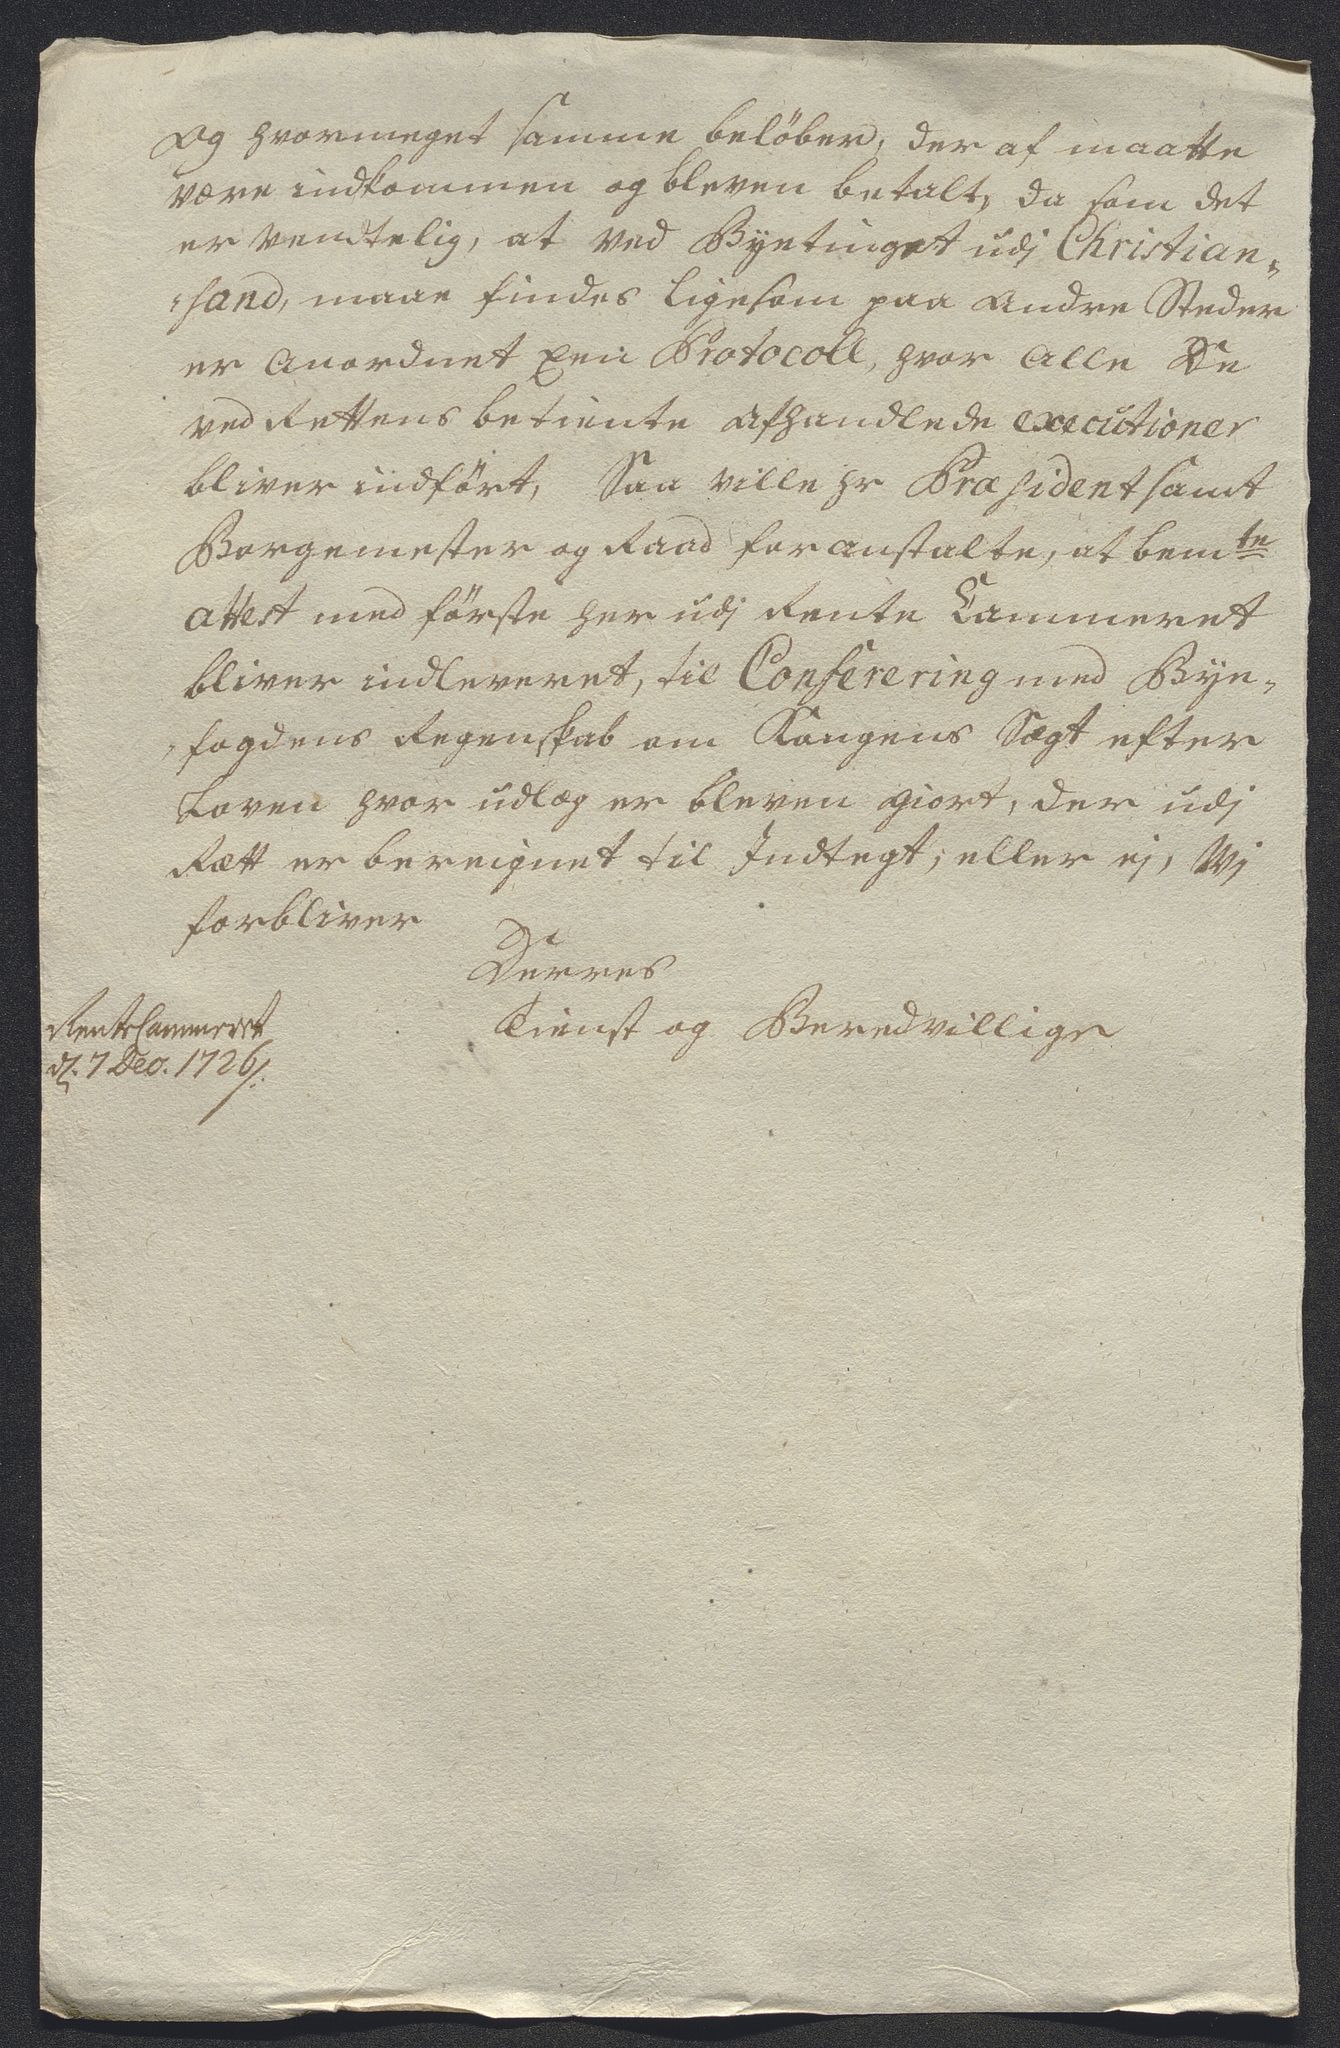 Og hvormeget samme beløber, der af maatte
være indkommen og bleven betalt, da som det
er vendtelig, at ved Byetinget udj Christian„
„sand, maae findes ligesom paa Andre Steder
er Anordnet Een Protocoll, hvor Alle De
ved Rettens betiente Afhandlede executioner
bliver indført, Saa ville hr Præsident samt
Borgemester og Raad foranstalte, at bemte
attest med første her udj Rente Cammeret
bliver indleveret, til Conferering med Bye„
„fogdens Regenskab om Kongens Sagt efter
Loven hvor udlæg er bleven giort, der udj
Rætt er bereignet til Indtegt, eller ej, Wj
forbliver
Derres
Tienst og Beredvillige
RenteCammeret
d. 7 Dec. 1726